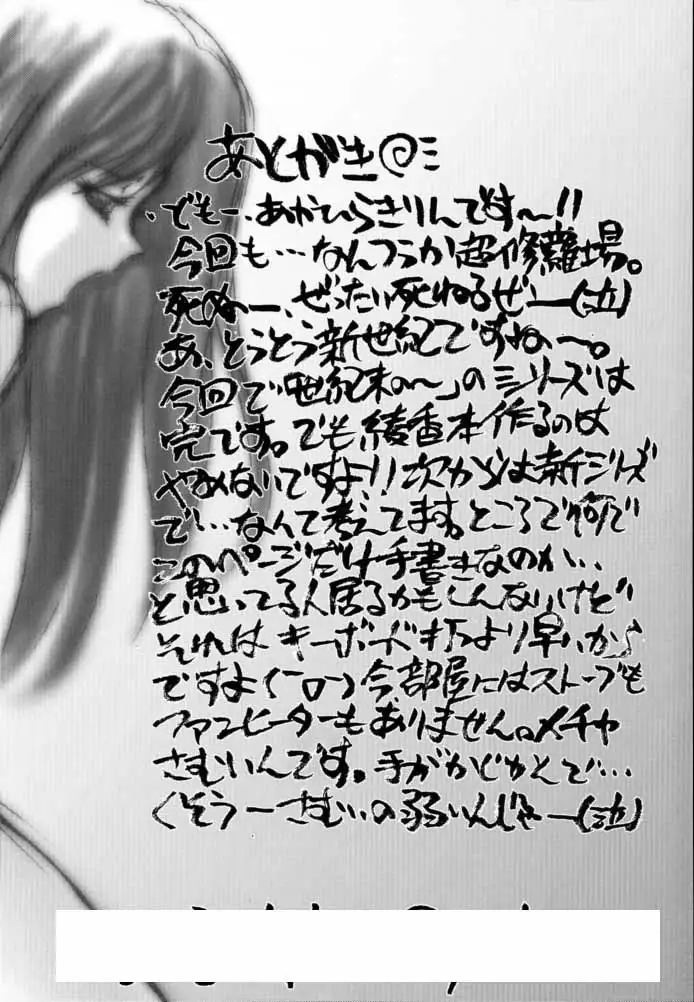 あとがき@ミ
、どもー、あかひらきりんです〜!!
今回も…なんつうか超修羅場。
死ぬー、ぜったい死ねるぜー(泣)
あ、とうとう新世紀ですねー。
今回で「世紀末の〜」のシリーズは
完です。でも綾香本作るのは
やめないですよ!!次からは新シリーズ
で…なんて考えてます。ところで何で
このページだけ手書きなのか…
と思いてる人居るかもしんないけど
それはキーボード打つより早いから
ですよ(ーロー)今、部屋にはストーブも
ファンヒーターもありません。メチャ
さむいんです。手がかじかんで…
くそうーさむいの弱いんじゃー(泣)